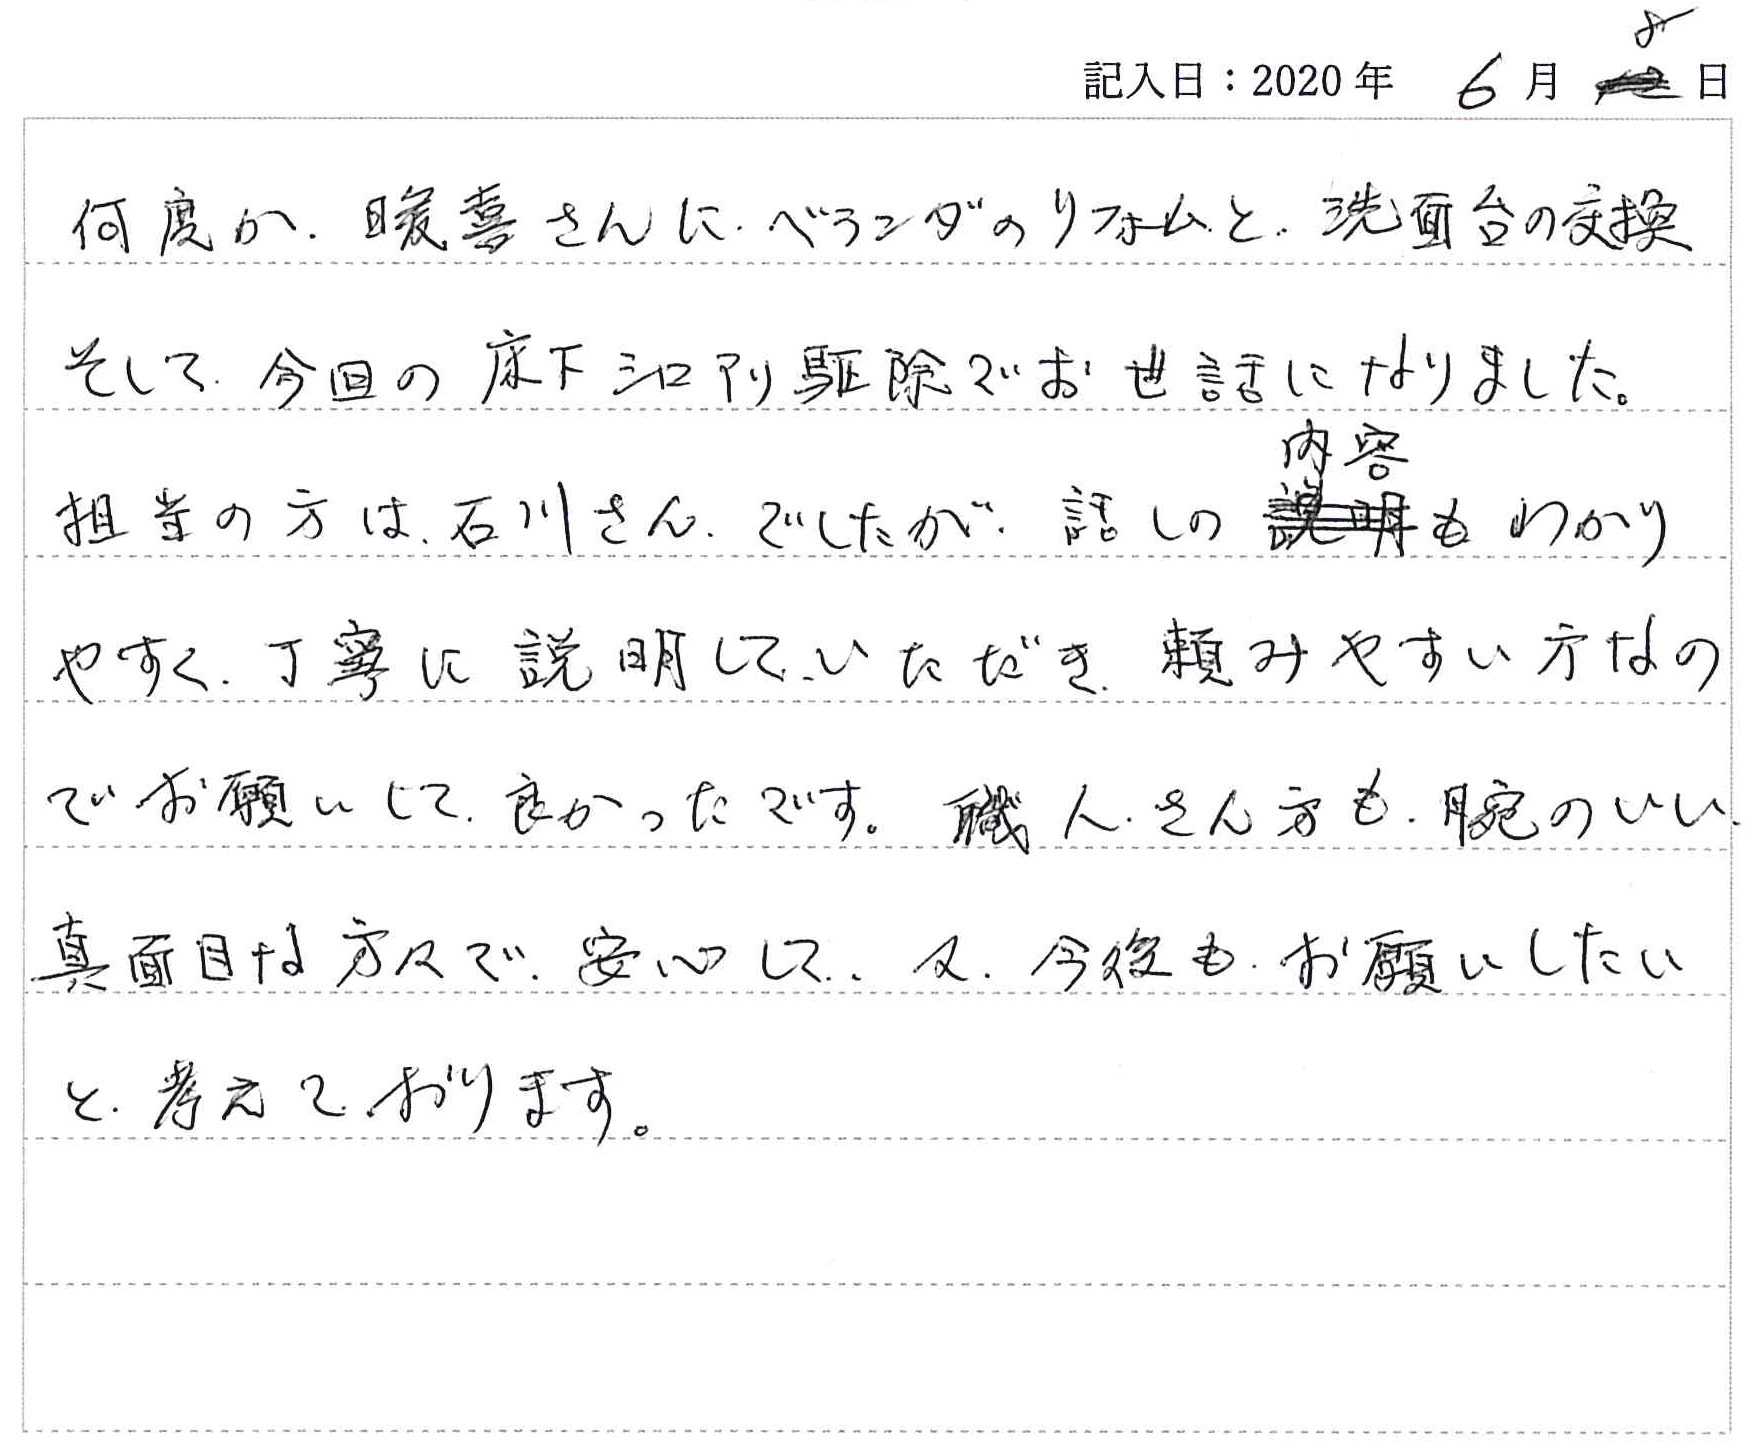 記入日：2020年 6月 8日
何度か、暖喜さんに、ベランダのリフォームと、洗面台の交換
そして、今回の床下シロアリ駆除でお世話になりました。
担当の方は、石川さん、でしたが、話しの内容もわかり
やすく、丁寧に説明して、いただき、頼みやすい方なの
でお願いして、良かったです。職人、さん方も、腕のいい、
真面目な方々で、安心して、、又、今後も、お願いしたい
と、考えて、おります。